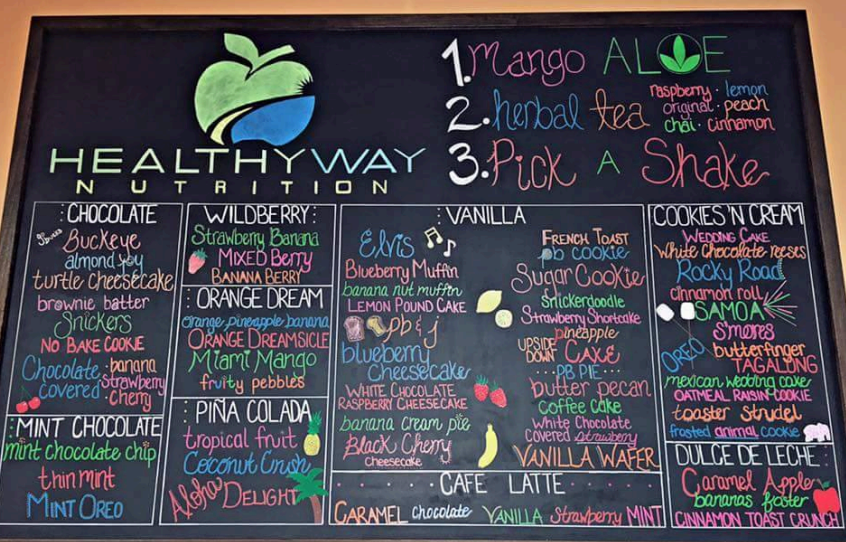 HEALTHYWAY
NUTRITION
1. Mango ALOE
2. herbal tea
raspberry · lemon
original · peach
chai · cinnamon
3. Pick A Shake
CHOCOLATE
go bucks
Buckeye
almond joy
turtle cheesecake
brownie batter
Snickers
NO BAKE COOKIE
Chocolate covered
· banana
· strawberry
· cherry
MINT CHOCOLATE
mint chocolate chip
thin mint
MINT OREO
WILDBERRY
Strawberry Banana
MIXED BERRY
BANANA BERRY
ORANGE DREAM
orange-pineapple-banana
ORANGE DREAMSICLE
Miami Mango
fruity pebbles
PIÑA COLADA
tropical fruit
Coconut Crush
Aloha DELIGHT
VANILLA
Elvis
Blueberry Muffin
banana nut muffin
LEMON POUND CAKE
pb & j
blueberry
Cheesecake
WHITE CHOCOLATE
RASPBERRY CHEESECAKE
banana cream pie
Black Cherry
Cheesecake
FRENCH TOAST
pb cookie
Sugar Cookie
Snickerdoodle
Strawberry Shortcake
pineapple
UPSIDE DOWN CAKE
PB PIE
butter pecan
coffee cake
White Chocolate
Covered strawberry
VANILLA WAFER
CAFE LATTE
CARAMEL chocolate VANILLA strawberry MINT
COOKIES 'N CREAM
WEDDING CAKE
White Chocolate-reeses
Rocky Road
cinnamon roll
SAMOA
S'mores
OREO
butterfinger
TAGALONG
mexican wedding cake
OATMEAL RAISIN COOKIE
toaster strudel
frosted animal cookie
DULCE DE LECHE
Caramel Apple
bananas foster
CINNAMON TOAST CRUNCH